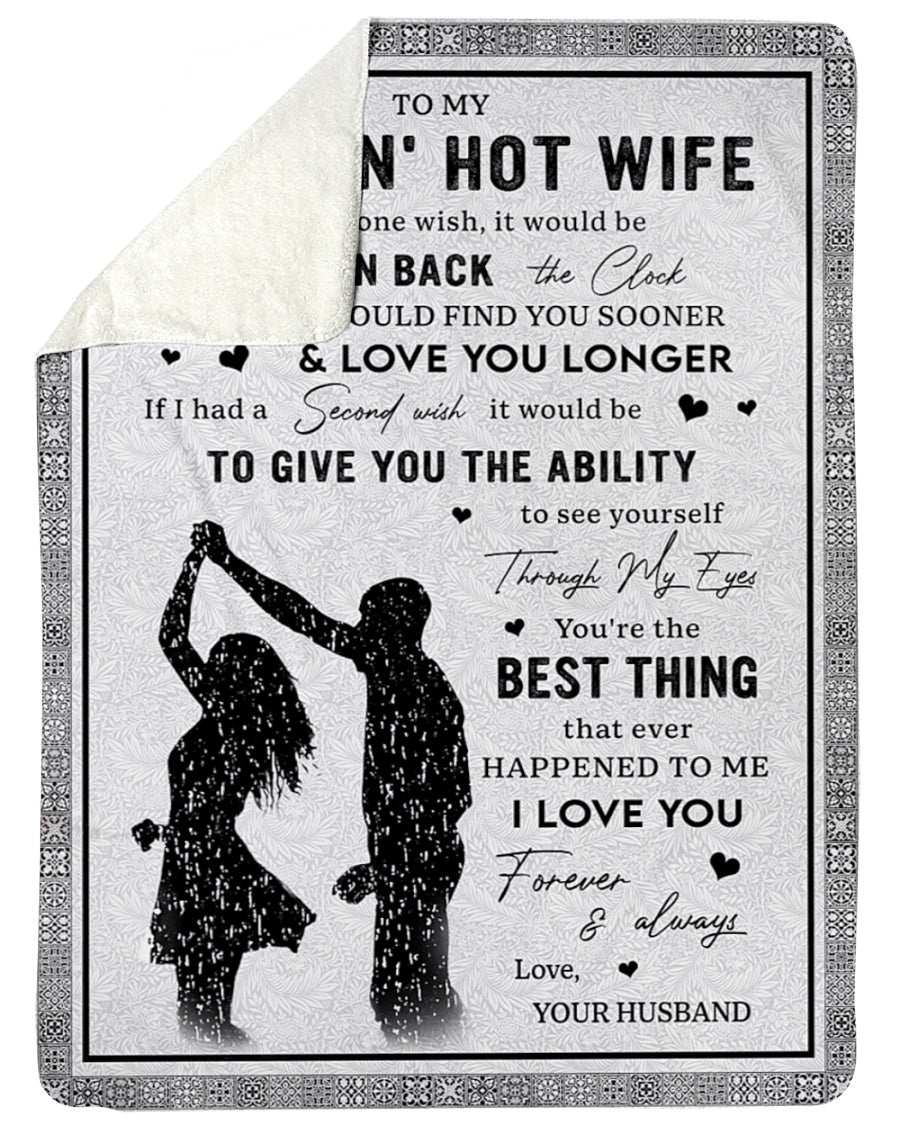 TO MY
N' HOT WIFE
one wish, it would be
N BACK the Clock
OULD FIND YOU SOONER
& LOVE YOU LONGER
If I had a Second wish it would be
TO GIVE YOU THE ABILITY
to see yourself
Through My Eyes
You're the
BEST THING
that ever
HAPPENED TO ME
I LOVE YOU
Forever
& always
Love,
YOUR HUSBAND